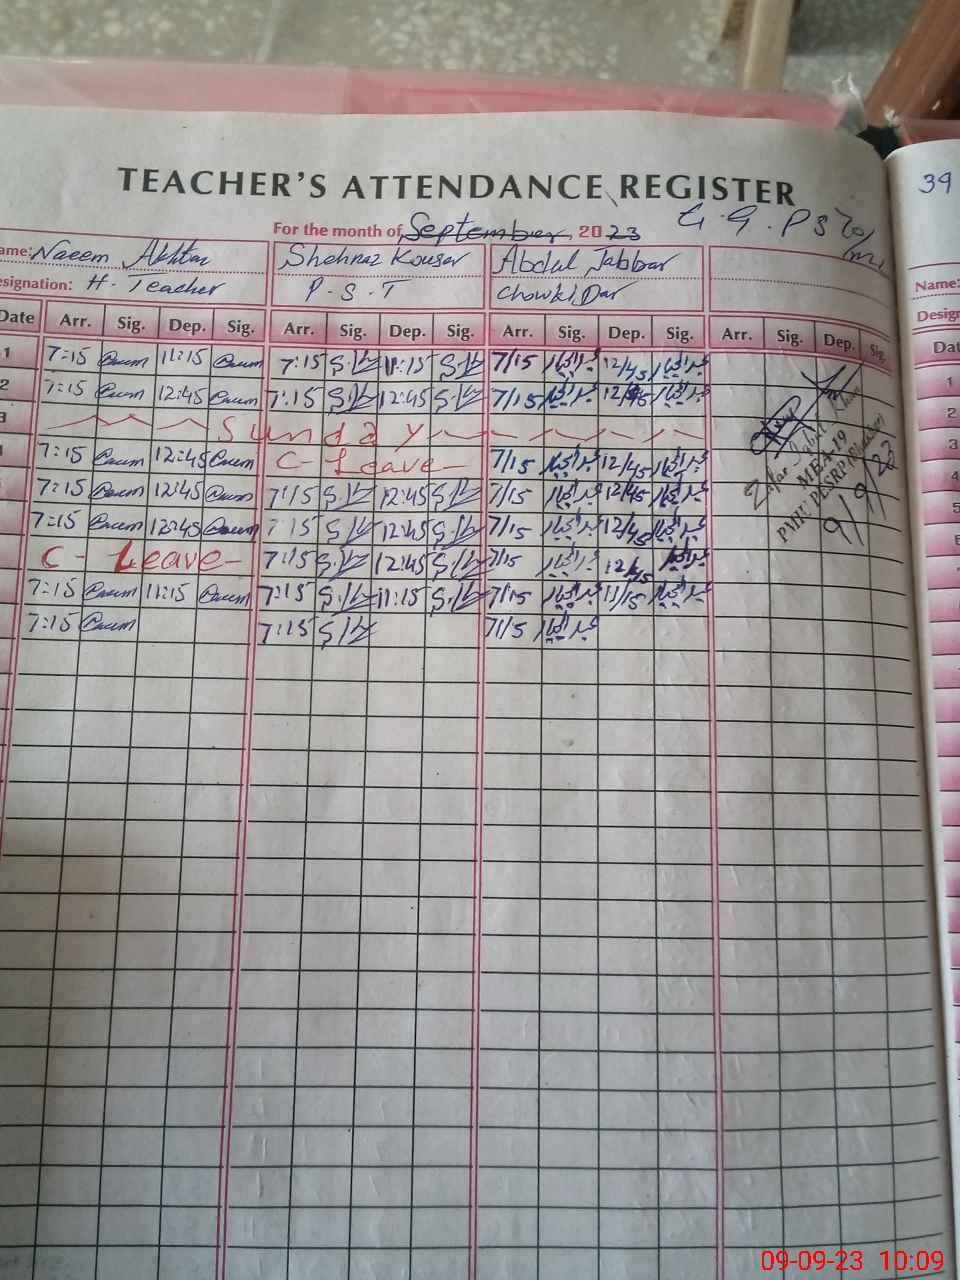 TEACHER'S ATTENDANCE REGISTER
39
For the month of September 2023 G.G.PS
ame: Naeem Akhtar Shehnaz Kousar Abdul Jabbar
esignation: H. Teacher P.S.T Chowki Dar
Name:
Desig
Date Arr. Sig. Dep. Sig. Arr. Sig. Dep. Sig. Arr. Sig. Dep. Sig. Arr. Sig. Dep. Sig.
Dat
1 7:15 11:15 7:15 11:15 7/15 12/45
2 7:15 12:45 7:15 12:45 7/15 12/45
3 Sunday
7:15 12:45 C- Leave- 7/15 12/45
7:15 12:45 7:15 12:45 7/15 12/45
7:15 12:45 7:15 12:45 7/15 12/45
C- Leave- 7:15 12:45 7/15 12/45
7:15 11:15 7:15 11:15 7/15 11/15
7:15 7:15 7/15
MEA-19
9/9/23
1
2
3
4
5
6
09-09-23 10:09